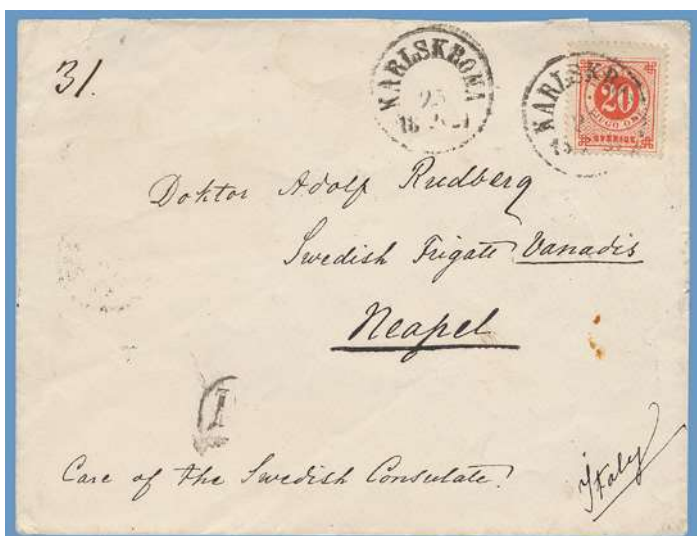 31.
KARLSKRONA
23
18
KARLSKR
20
Doktor Adolf Rudberg
Swedish Frigate Vanadis
Neapel
Care of the Swedish Consulate.
Italy